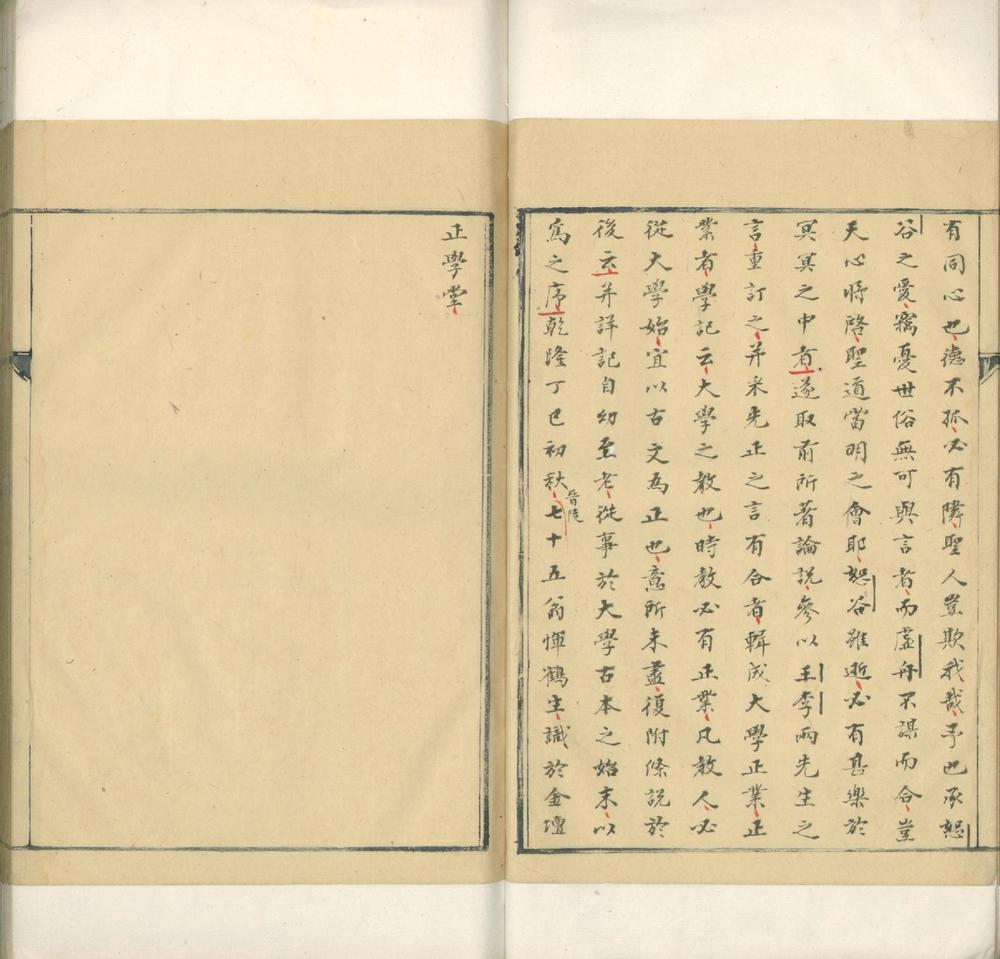 有同心也德不孤必有隣聖人豈欺我哉予也承恕
谷之愛竊憂世俗無可與言者而虛舟不謀而合豈
天心將啓聖道當明之會耶恕谷雖逝必有甚樂於
冥冥之中者遂取前所著論說參以王李兩先生之
言重訂之并采先正之言有合者輯成大學正業正
業者學記云大學之教也時教必有正業凡教人必
從大學始宜以古文為正也意所未盡復附條說於
後云并詳記自幼至老從事於大學古本之始末以
寫之序乾隆丁巳初秋晉陵七十五翁惲鶴生識於金壇
正學堂